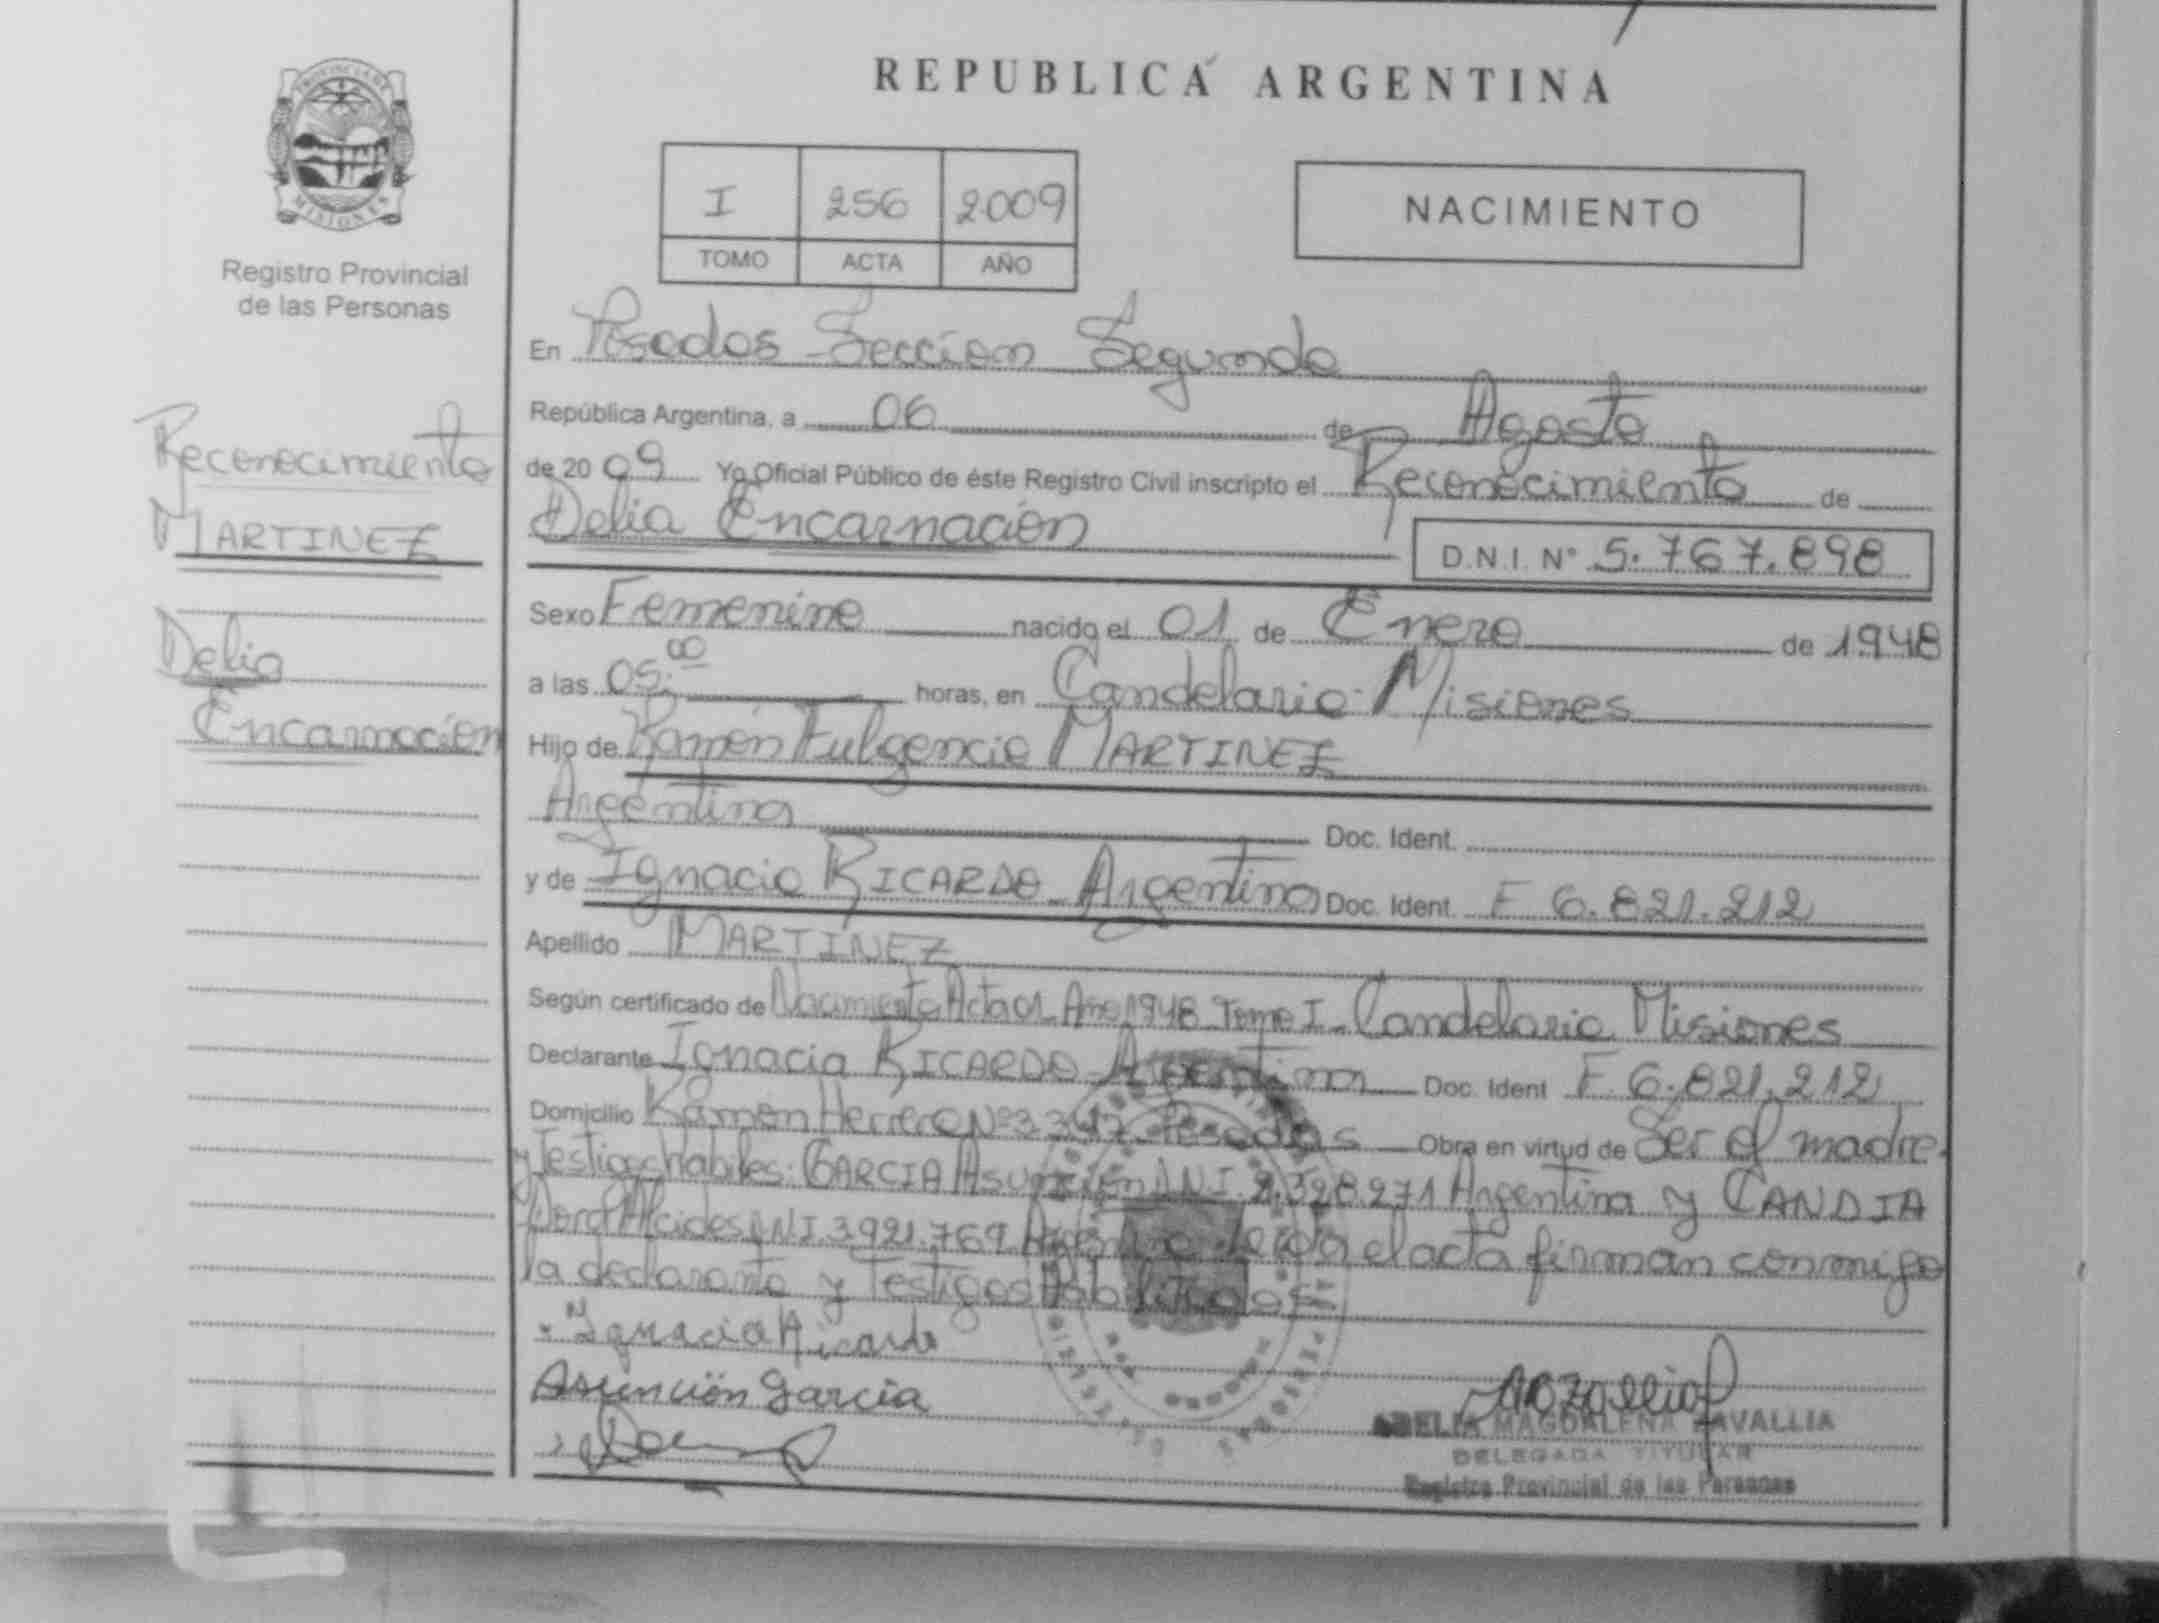 PROVINCIA DE
MISIONES
Registro Provincial
de las Personas
Reconocimiento
MARTINEZ
Delia
Encarnación
REPUBLICA ARGENTINA
I 256 2009
TOMO ACTA AÑO
NACIMIENTO
En Posadas Sección Segunda
República Argentina, a 06 de Agosto
de 2009 Yo Oficial Público de éste Registro Civil inscripto el Reconocimiento de
Delia Encarnación D.N.I. Nº 5.767.898
Sexo Femenino nacido el 01 de Enero de 1948
a las 05:00 horas, en Candelaria - Misiones
Hijo de Ramón Fulgencio MARTINEZ
Argentino Doc. Ident.
y de Ignacia RICARDO Argentina Doc. Ident. F 6.821.212
Apellido MARTINEZ
Según certificado de Nacimiento Acta 01 Año 1948 Tomo I - Candelaria Misiones
Declarante Ignacia RICARDO Argentina Doc. Ident F. 6.821.212
Domicilio Ramón Herrero Nº Posadas Obra en virtud de Ser madre
y Testigos Habiles: GARCIA Asunción DNI 2.328.271 Argentina y CANDIA
Alcides DNI 3.921.769 Argentino Leida el acta firman conmigo
la declarante y Testigos
Ignacia Ricardo
Asunción Garcia
ADELIA MAGDALENA ZAVALLIA
DELEGADA TITULAR
Registro Provincial de las Personas